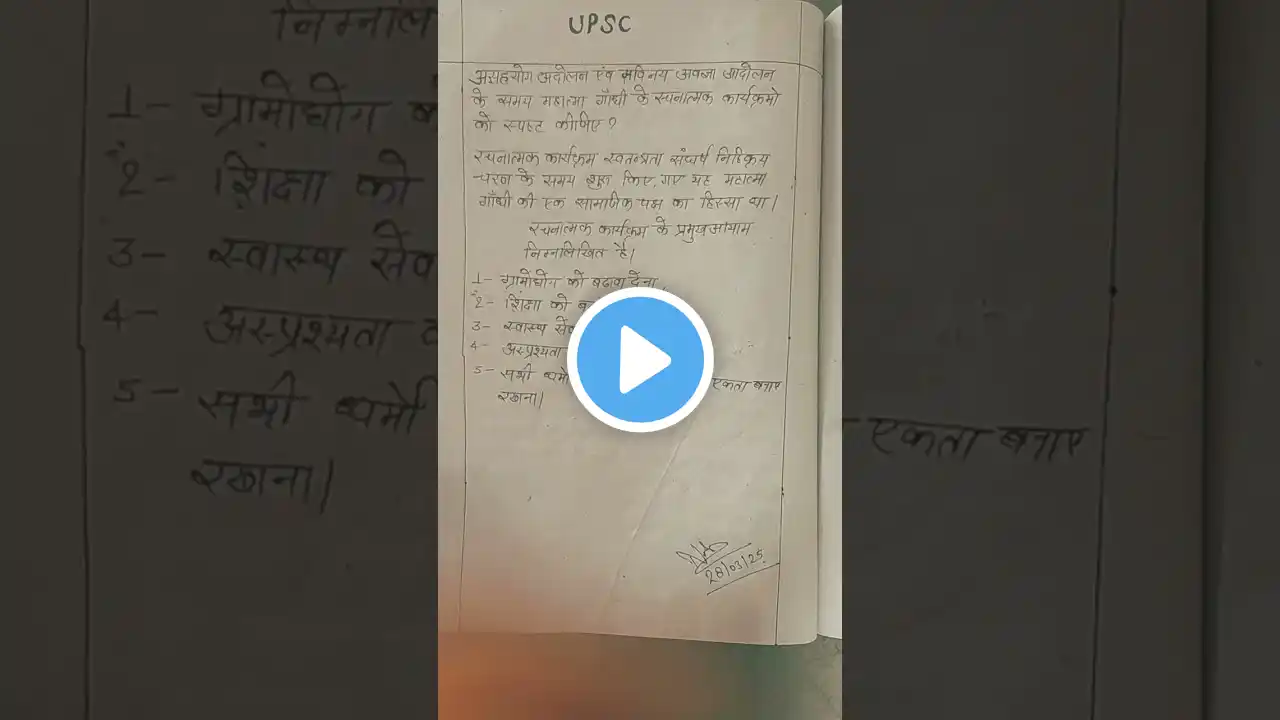 UPSC
असहयोग आंदोलन एवं सविनय अवज्ञा आंदोलन
के समय महात्मा गाँधी के रचनात्मक कार्यक्रमो
को स्पष्ट कीजिए ?
रचनात्मक कार्यक्रम स्वतन्त्रता संघर्ष निष्क्रिय
चरण के समय शुरू किए गए यह महात्मा
गाँधी की एक सामाजिक पक्ष का हिस्सा था।
रचनात्मक कार्यक्रम के प्रमुख आयाम
निम्नलिखित है।
1- ग्रामोघोग को बढावा देना
2- शिक्षा को
3- स्वास्थ
4- अस्प्रश्यता
5- सभी धर्मो एकता बनाए
रखना।
28/03/25